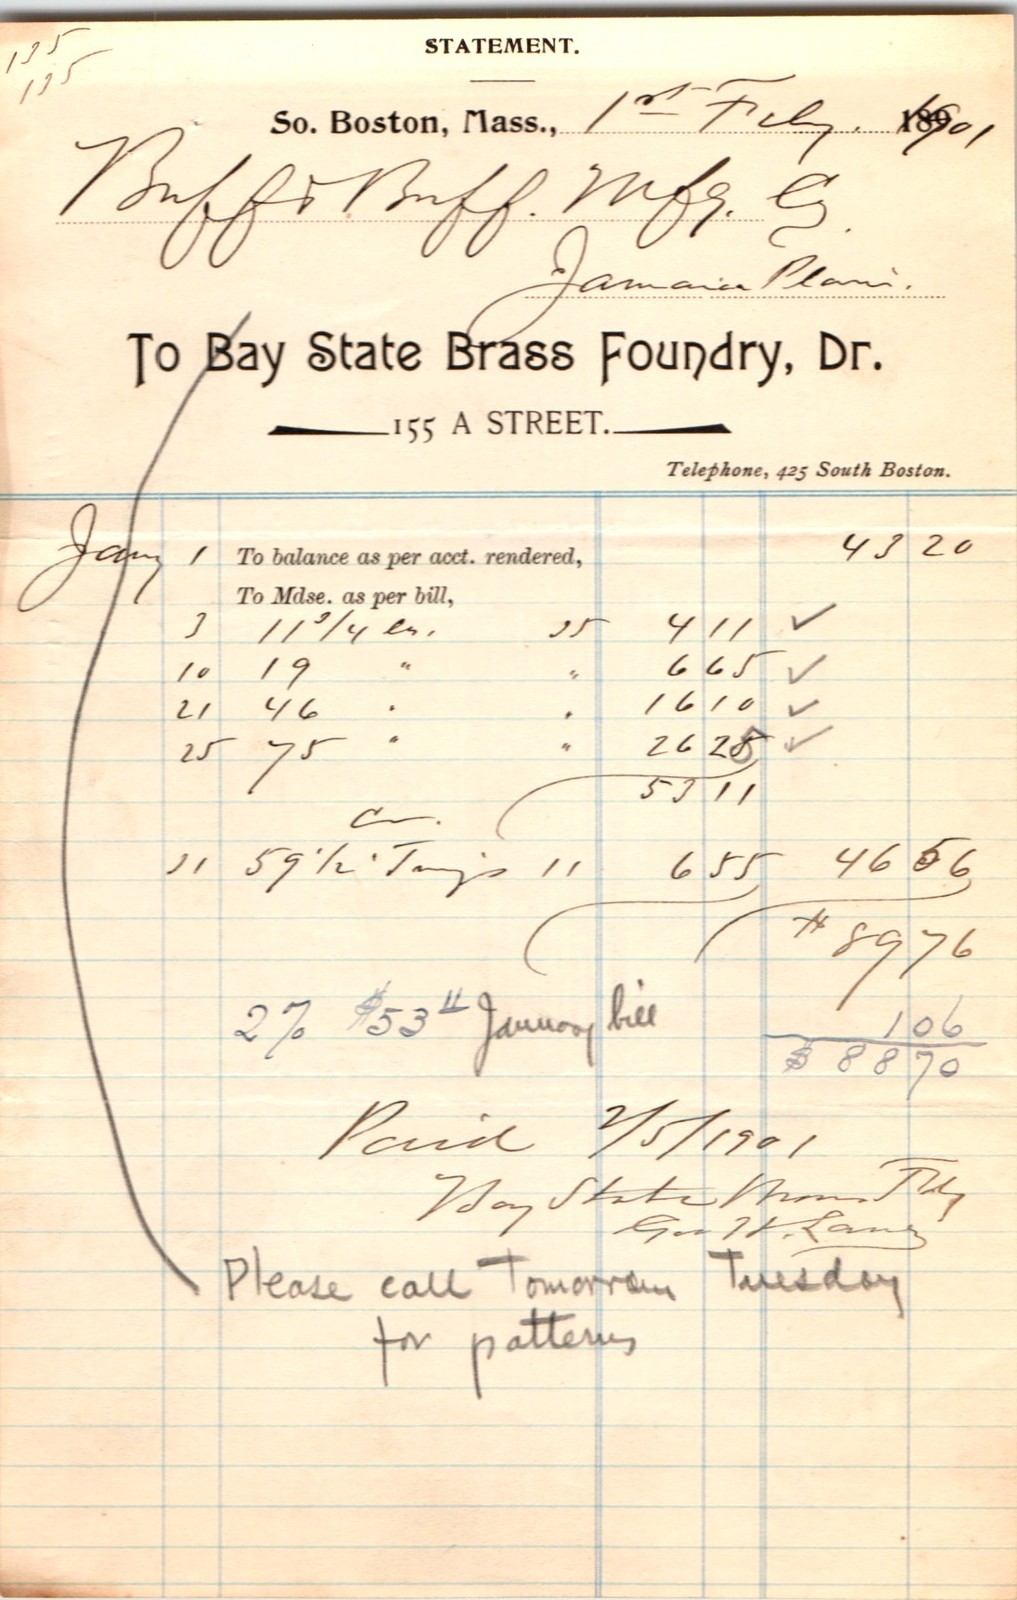 135
135
STATEMENT.
So. Boston, Mass., 1st Feby. 1901
Buff & Buff. Mfg. Co.
Jamaica Plain.
To Bay State Brass Foundry, Dr.
155 A STREET.
Telephone, 425 South Boston.
Jany 1 To balance as per acct. rendered, 43 20
To Mdse. as per bill,
3 11 3/4 35 4 11 ✓
10 19 " " 6 65 ✓
21 46 " " 16 10 ✓
25 75 " " 26 25 ✓
53 11
Cr.
31 59 1/2 11 6 55 46 56
$ 89 76
2% $53 11 January bill 1 06
$ 88 70
Paid 2/5/1901
Bay State Brass Fdy
Geo H.
Please call Tomorrow Tuesday
for patterns